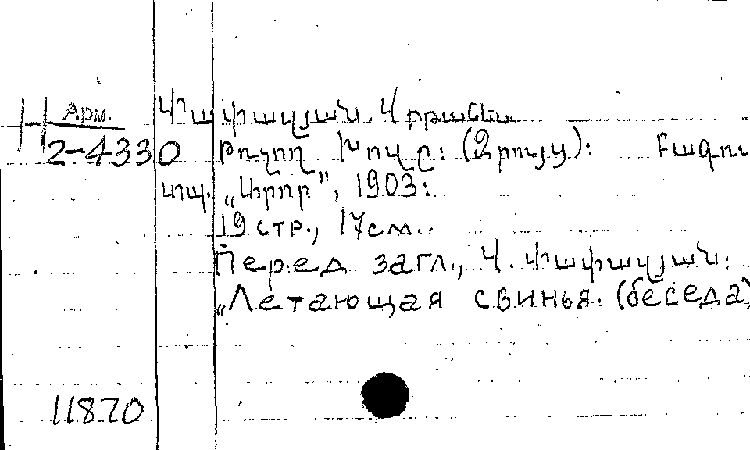 Арм.
H 2-4330
Փափազյան Վրթանես
Թռչող խոզը: (Զրույց): Բագու
տպ. „Արոր", 1903:
19 стр., 17 см.
Перед загл., Վ. Փափազյան:
„Летающая свинья. (беседа)
11870